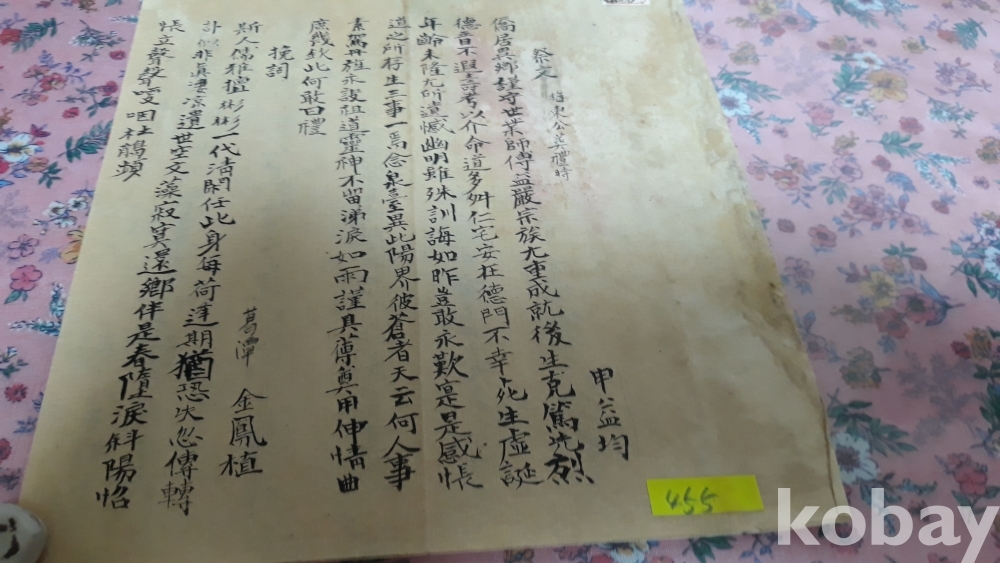 祭文 住東公葬禮時
申益均
僑居異鄉謹守世業師傅益嚴宗族尤重成就後生克篤先烈
德音不遐壽考以介命道多舛仁宅安在德門不幸死生虛誕
年齡未隆尤所遺憾幽明雖殊訓誨如昨豈敢永歎寔是感悵
道之所存生三事一焉念泉臺異此陽界彼蒼者天云何人事
素駕丹旐永設祖道靈神不留涕淚如雨謹具薄奠用伸情曲
庶幾歆此何敢曰禮
挽詞
葛潭 金鳳植
斯人儒雅擅彬彬一代淸閑任此身每荷達期猶恐失忽傳轉
訃 非眞凄凉遺世空文藻寂莫還鄉伴是春墮淚斜陽怊
悵立聲聲哽咽杜鵑頻
455
kobay